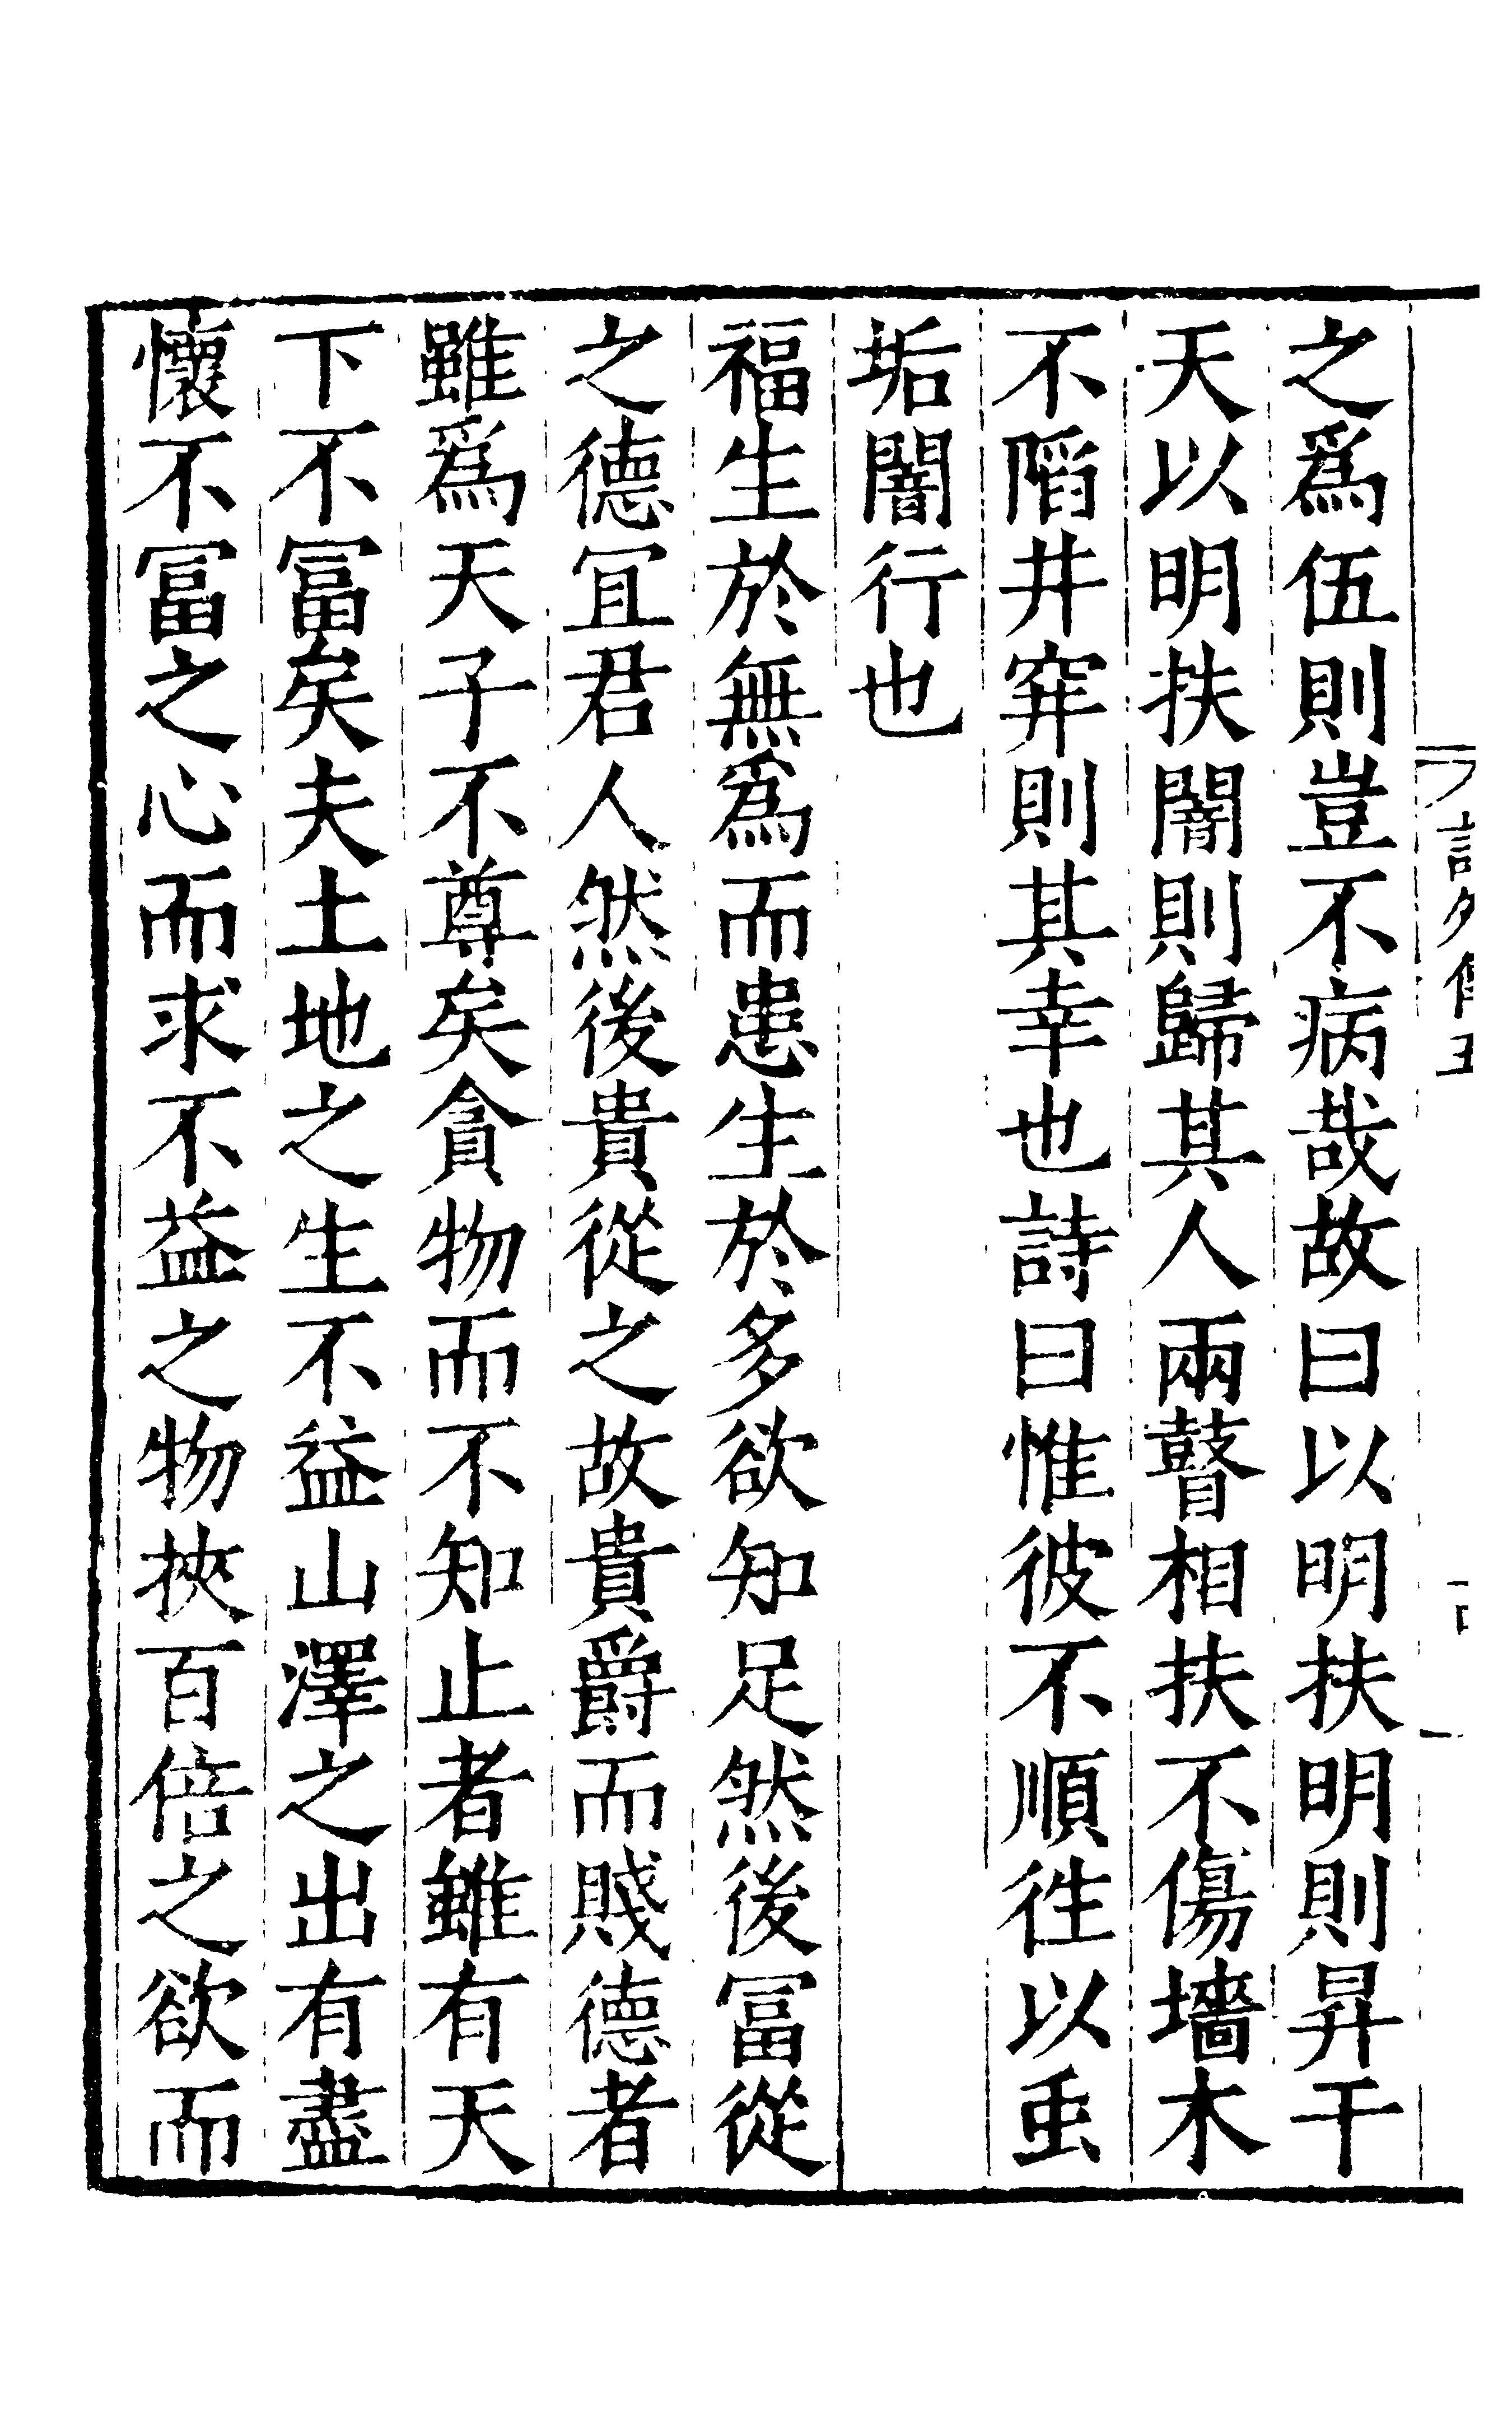 之爲伍則豈不病哉故曰以明扶明則昇干
天以明扶闇則歸其人兩瞽相扶不傷墻木
不䧟井穽則其幸也詩曰惟彼不順徃以䖝
垢闇行也
福生於無爲而患生於多欲知足然後冨從
之德冝君人然後貴從之故貴爵而賤德者
雖爲天子不尊矣貪物而不知止者雖有天
下不冨矣夫土地之生不益山澤之出有盡
懷不冨之心而求不益之物挾百倍之欲而